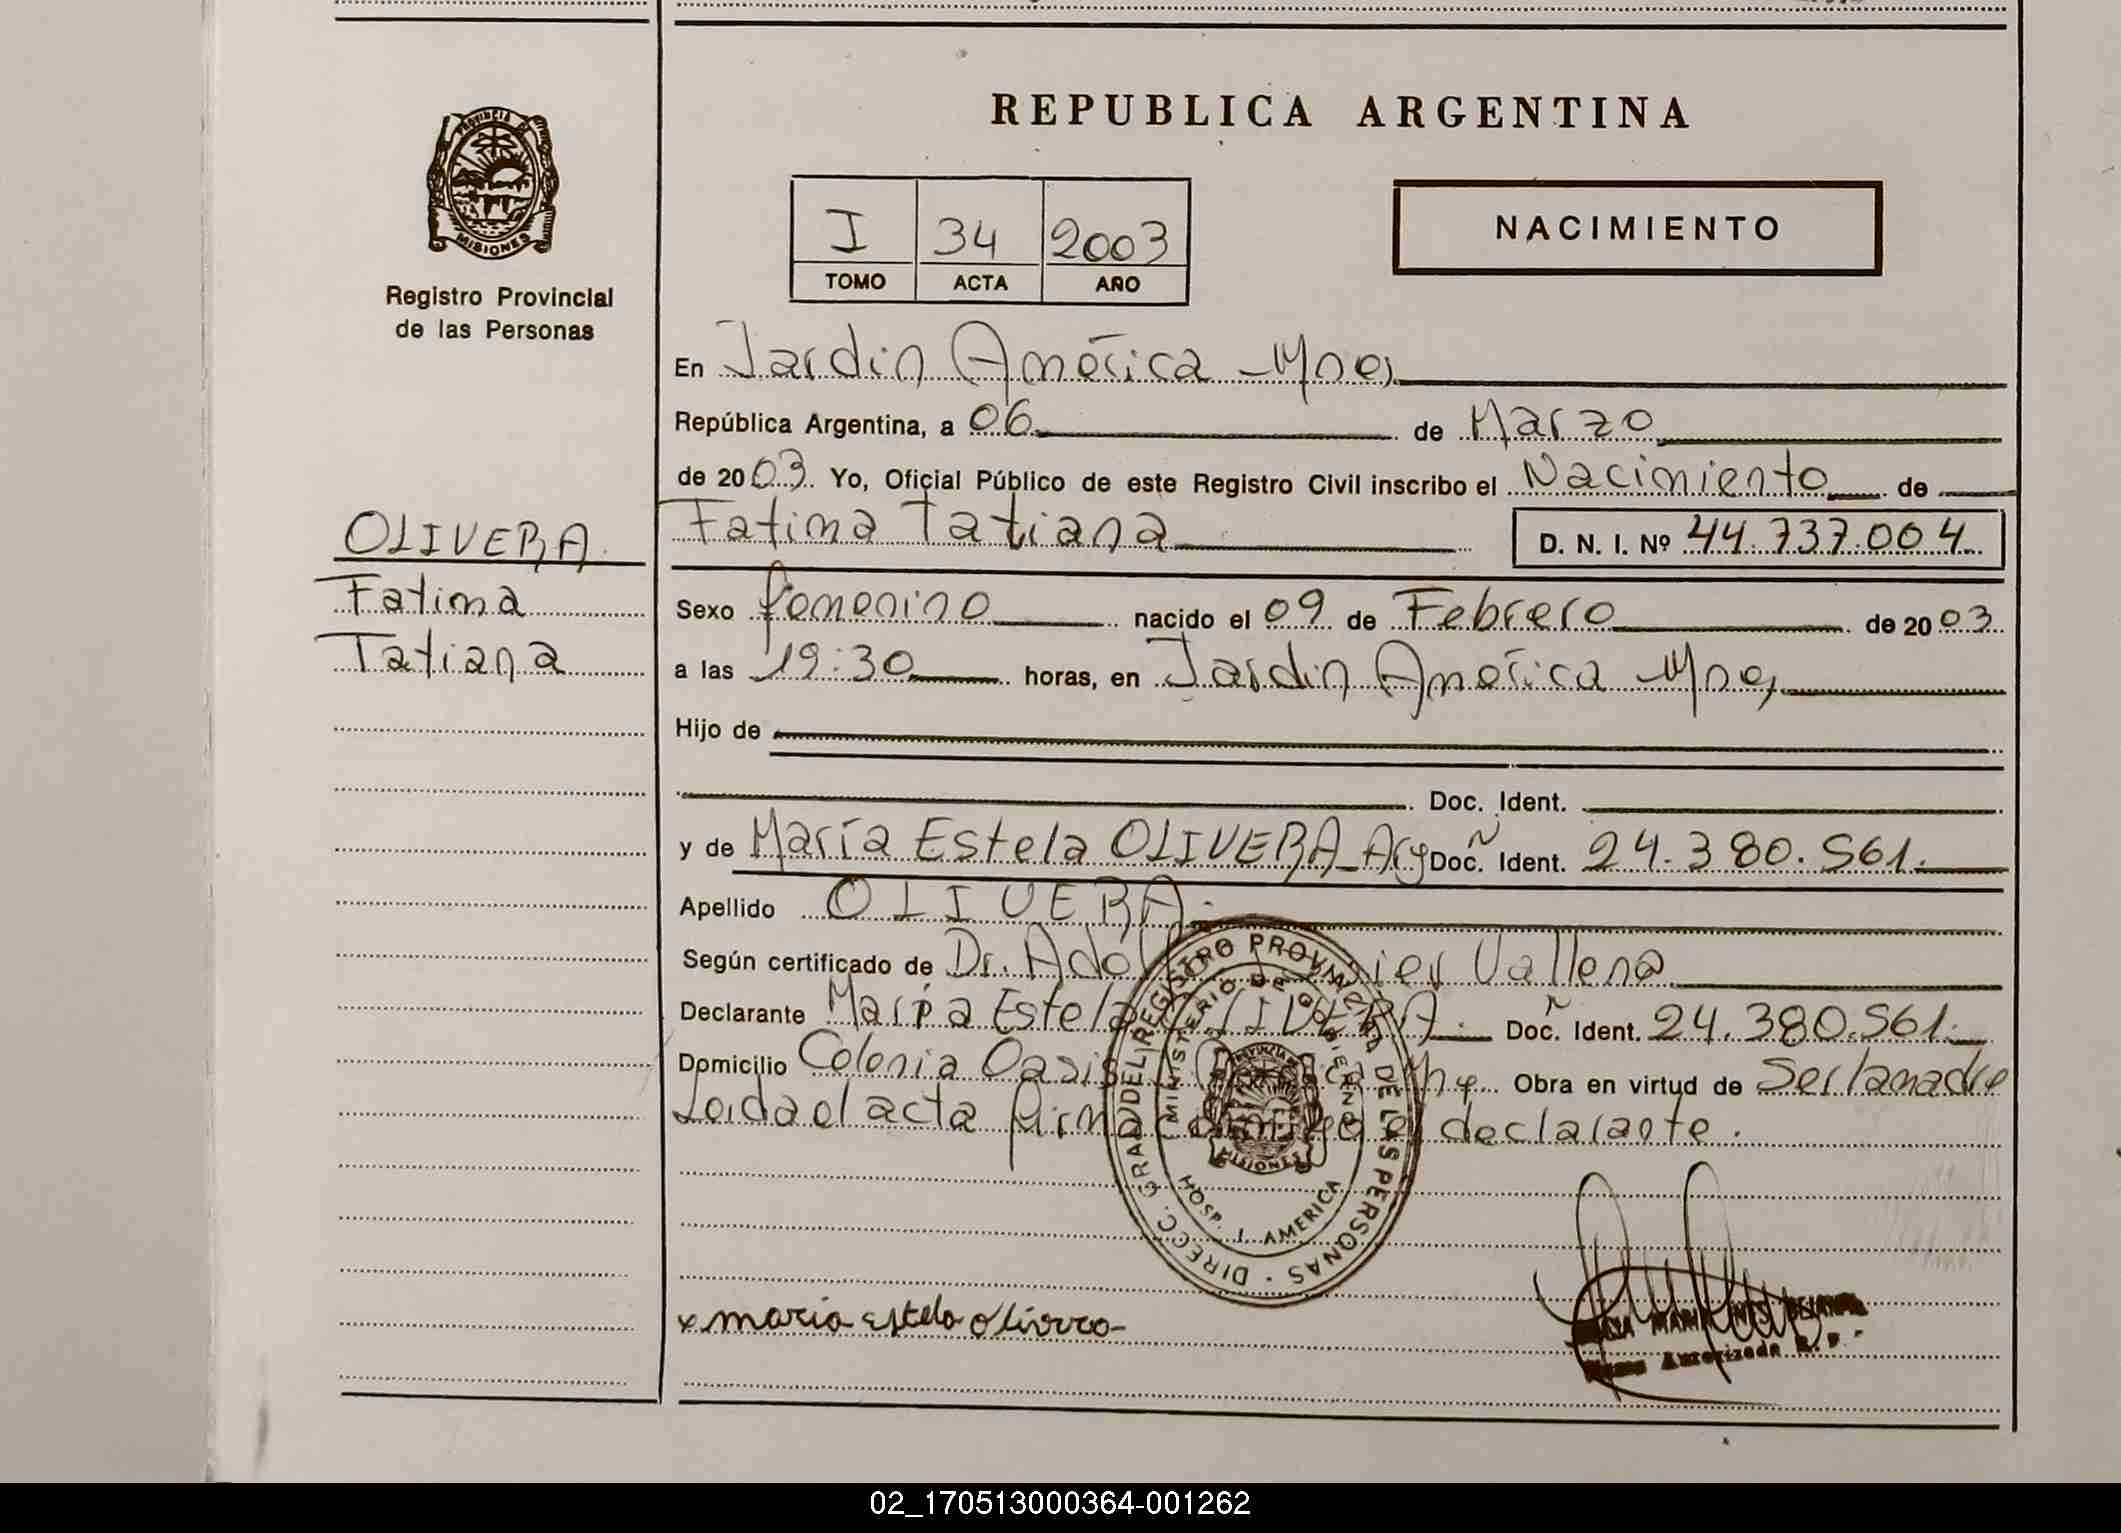 REPUBLICA ARGENTINA
PROVINCIA DE
MISIONES
Registro Provincial
de las Personas
I 34 2003
TOMO ACTA AÑO
NACIMIENTO
En Jardin América Mnes
República Argentina, a 06 de Marzo
de 2003 Yo, Oficial Público de este Registro Civil inscribo el Nacimiento de
Fatima Tatiana D. N. I. Nº 44.737.004
OLIVERA
Fatima
Tatiana
Sexo femenino nacido el 09 de Febrero de 2003
a las 19:30 horas, en Jardin América Mnes
Hijo de
Doc. Ident.
y de María Estela OLIVERA Arg Doc. Ident. 24.380.561.
Apellido OLIVERA.
Según certificado de Dr. Vallena
Declarante María Estela OLIVERA. Doc. Ident. 24.380.561.
Domicilio Colonia Oasis Obra en virtud de Ser la madre
Leida el acta el declarante.
DIRECC. GRAL. DEL REGISTRO PROVINCIAL DE LAS PERSONAS
MINISTERIO DE GOBIERNO
PROVINCIA DE
MISIONES
HOSP. J. AMERICA
x maria estela olivera
MARIA
Autorizada R. P.
02_170513000364-001262